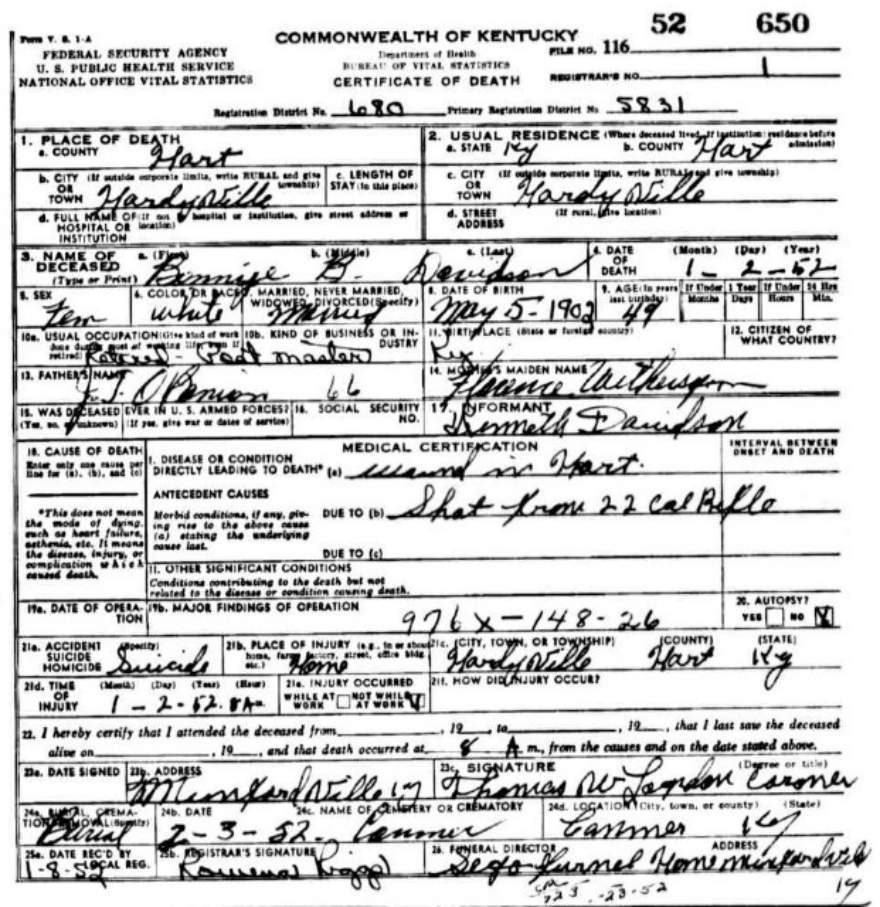 52 650
Form V. S. 1-A
COMMONWEALTH OF KENTUCKY
FEDERAL SECURITY AGENCY
Department of Health
FILE NO. 116
U. S. PUBLIC HEALTH SERVICE
BUREAU OF VITAL STATISTICS
NATIONAL OFFICE VITAL STATISTICS
CERTIFICATE OF DEATH
REGISTRAR'S NO. 1
Registration District No. 680 Primary Registration District No 5831
1. PLACE OF DEATH
a. COUNTY Hart
2. USUAL RESIDENCE (Where deceased lived. If institution: residence before admission)
a. STATE Ky b. COUNTY Hart
b. CITY (If outside corporate limits, write RURAL and give township)
OR TOWN HardyVille
c. LENGTH OF STAY (In this place)
c. CITY (If outside corporate limits, write RURAL and give township)
OR TOWN HardyVille
d. FULL NAME OF (If not in hospital or institution, give street address or location)
HOSPITAL OR INSTITUTION
d. STREET (If rural, give location)
ADDRESS
3. NAME OF DECEASED (Type or Print)
a. (First) b. (Middle) B. c. (Last) Davidson
4. DATE OF DEATH (Month) (Day) (Year)
1 - 2 - 52
5. SEX Fem
6. COLOR OR RACE White
7. MARRIED, NEVER MARRIED, WIDOWED, DIVORCED (Specify) Married
8. DATE OF BIRTH May 5 - 1902
9. AGE (In years last birthday) 49
If Under 1 Year Months Days
If Under 24 Hrs Hours Min.
10a. USUAL OCCUPATION (Give kind of work done during most of working life, even if retired) Retired - Post master
10b. KIND OF BUSINESS OR INDUSTRY
11. BIRTHPLACE (State or foreign country) Ky.
12. CITIZEN OF WHAT COUNTRY?
13. FATHER'S NAME J. T. OBanion 66
14. MOTHER'S MAIDEN NAME Florence Witherspoon
15. WAS DECEASED EVER IN U. S. ARMED FORCES?
(Yes, no, or unknown) (If yes, give war or dates of service)
16. SOCIAL SECURITY NO.
17. INFORMANT Kenneth Davidson
18. CAUSE OF DEATH
Enter only one cause per line for (a), (b), and (c)
MEDICAL CERTIFICATION
INTERVAL BETWEEN ONSET AND DEATH
I. DISEASE OR CONDITION DIRECTLY LEADING TO DEATH* (a) wound in Hart.
*This does not mean the mode of dying, such as heart failure, asthenia, etc. It means the disease, injury, or complication which caused death.
ANTECEDENT CAUSES
Morbid conditions, if any, giving rise to the above cause (a) stating the underlying cause last.
DUE TO (b) Shot from 22 Cal Rifle
DUE TO (c)
II. OTHER SIGNIFICANT CONDITIONS
Conditions contributing to the death but not related to the disease or condition causing death.
19a. DATE OF OPERATION
19b. MAJOR FINDINGS OF OPERATION
976X-148-26
20. AUTOPSY?
YES NO X
21a. ACCIDENT SUICIDE HOMICIDE (Specify) Suicide
21b. PLACE OF INJURY (e.g., in or about home, farm, factory, street, office bldg. etc.) Home
21c. (CITY, TOWN, OR TOWNSHIP) (COUNTY) (STATE)
HardyVille Hart Ky
21d. TIME OF INJURY (Month) (Day) (Year) (Hour)
1 - 2 - 52. 8 Am
21e. INJURY OCCURRED
WHILE AT WORK NOT WHILE AT WORK
21f. HOW DID INJURY OCCUR?
22. I hereby certify that I attended the deceased from , 19 , to , 19 , that I last saw the deceased
alive on , 19 , and that death occurred at 8 A m., from the causes and on the date stated above.
23a. DATE SIGNED
23b. ADDRESS MunfordVille Ky
23c. SIGNATURE (Degree or title)
Thomas W Coroner
24a. BURIAL, CREMATION, REMOVAL (Specify) Burial
24b. DATE 2-3-52.
24c. NAME OF CEMETERY OR CREMATORY Canmer
24d. LOCATION (City, town, or county) (State)
Canmer Ky
25a. DATE REC'D BY LOCAL REG. 1-8-52
25b. REGISTRAR'S SIGNATURE
26. FUNERAL DIRECTOR ADDRESS
Sego Furnel Home